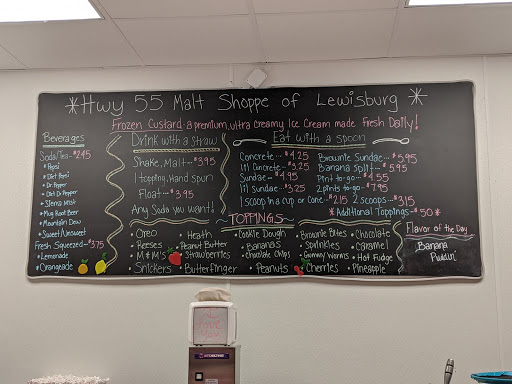 *Hwy 55 Malt Shoppe of Lewisburg *
Frozen Custard - a premium, ultra creamy Ice Cream made Fresh Daily!
Beverages
Soda/Tea - $2.45
* Pepsi
* Diet Pepsi
* Dr. Pepper
* Diet Dr. Pepper
* Sierra Mist
* Mug Root Beer
* Mountain Dew
* Sweet/Unsweet
Fresh Squeezed - $3.75
* Lemonade
* Orangeade
Drink with a straw
Shake, Malt... $3.95
1 topping, Hand spun
Float... $3.95
Any Soda you want!
Eat with a spoon
Concrete... $4.25
lil Concrete... $3.25
Sundae... $4.95
lil sundae... $3.25
1 scoop in a cup or Cone... $2.15 2 scoops... $3.15
Brownie Sundae... $5.95
Banana split... $5.95
Pint to-go... $4.55
2 pints to-go... $7.95
*Additional Toppings... $.50*
TOPPINGS
• Oreo
• Reeses
• M & M's
• Snickers
• Heath
• Peanut Butter
• Strawberries
• Butterfinger
• Cookie Dough
• Bananas
• Chocolate Chips
• Peanuts
• Brownie Bites
• Sprinkles
• Gummy Worms
• Cherries
• Chocolate
• Caramel
• Hot Fudge
• Pineapple
Flavor of the Day
Banana
Puddin'